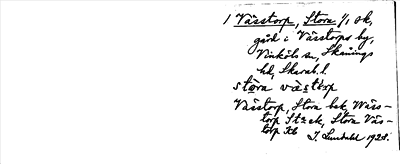 1 Västorp, Stora 1/1 sk,
gård i Västorps by,
Vinköls sn, Skånings
hd, Skarab. l.
stora västårp
Västorp, Stora bok, Wäss-
torp St sk, Stora Väs-
torp Jb I. Lundahl 1928.